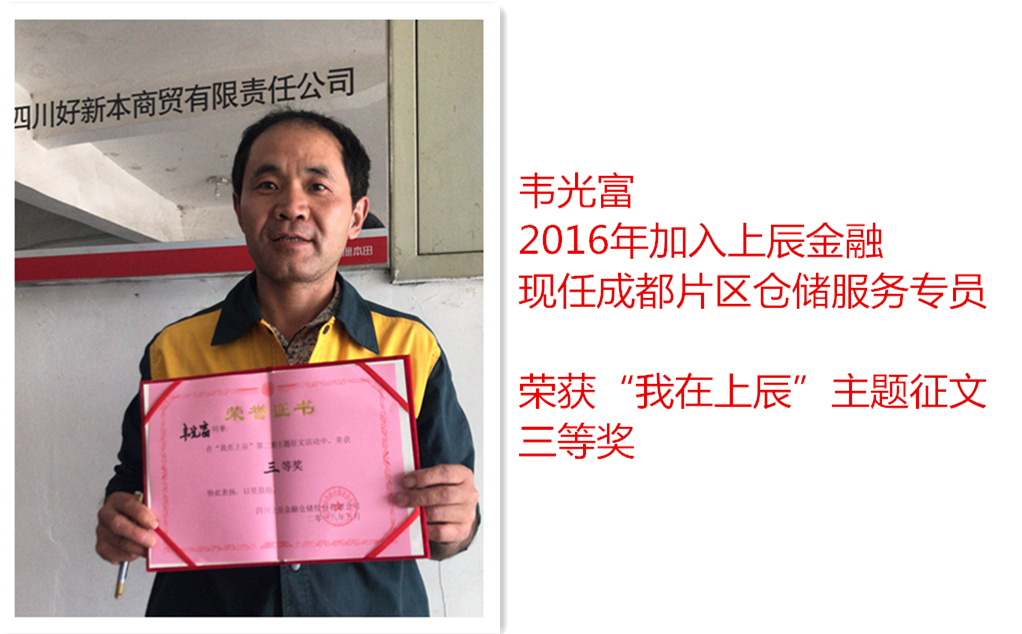 四川好新本商贸有限责任公司
本田
荣誉证书
韦光富同事：
在“我在上辰”第二期主题征文活动中，荣获
三等奖
特此表扬，以资鼓励。
韦光富
2016年加入上辰金融
现任成都片区仓储服务专员
荣获“我在上辰”主题征文
三等奖